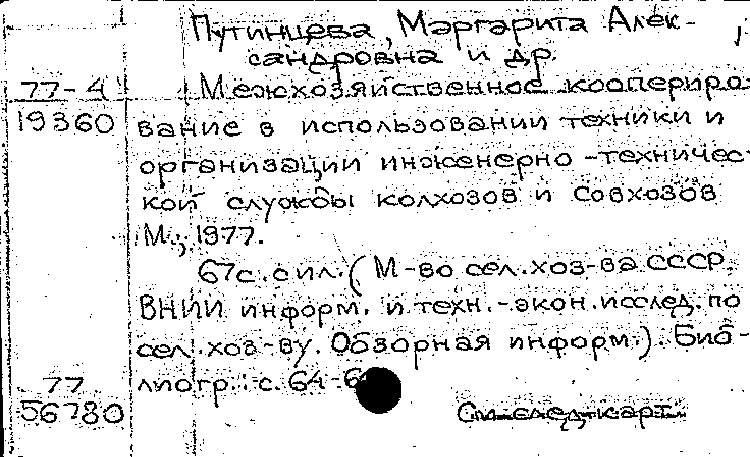 Путинцева, Маргарита Алек-
сандровна и др.
77-4 Межхозяйственное коопериро-
19360 вание в использовании техники и
организации инженерно-техничес-
кой службы колхозов и совхозов
М., 1977.
67с. с ил. (М-во сел. хоз-ва СССР.
ВНИИ информ. и техн.-экон. исслед. по
сел. хоз-ву. Обзорная информ.). Биб-
77 лиогр.: с. 64-
56780 См. след. карт.